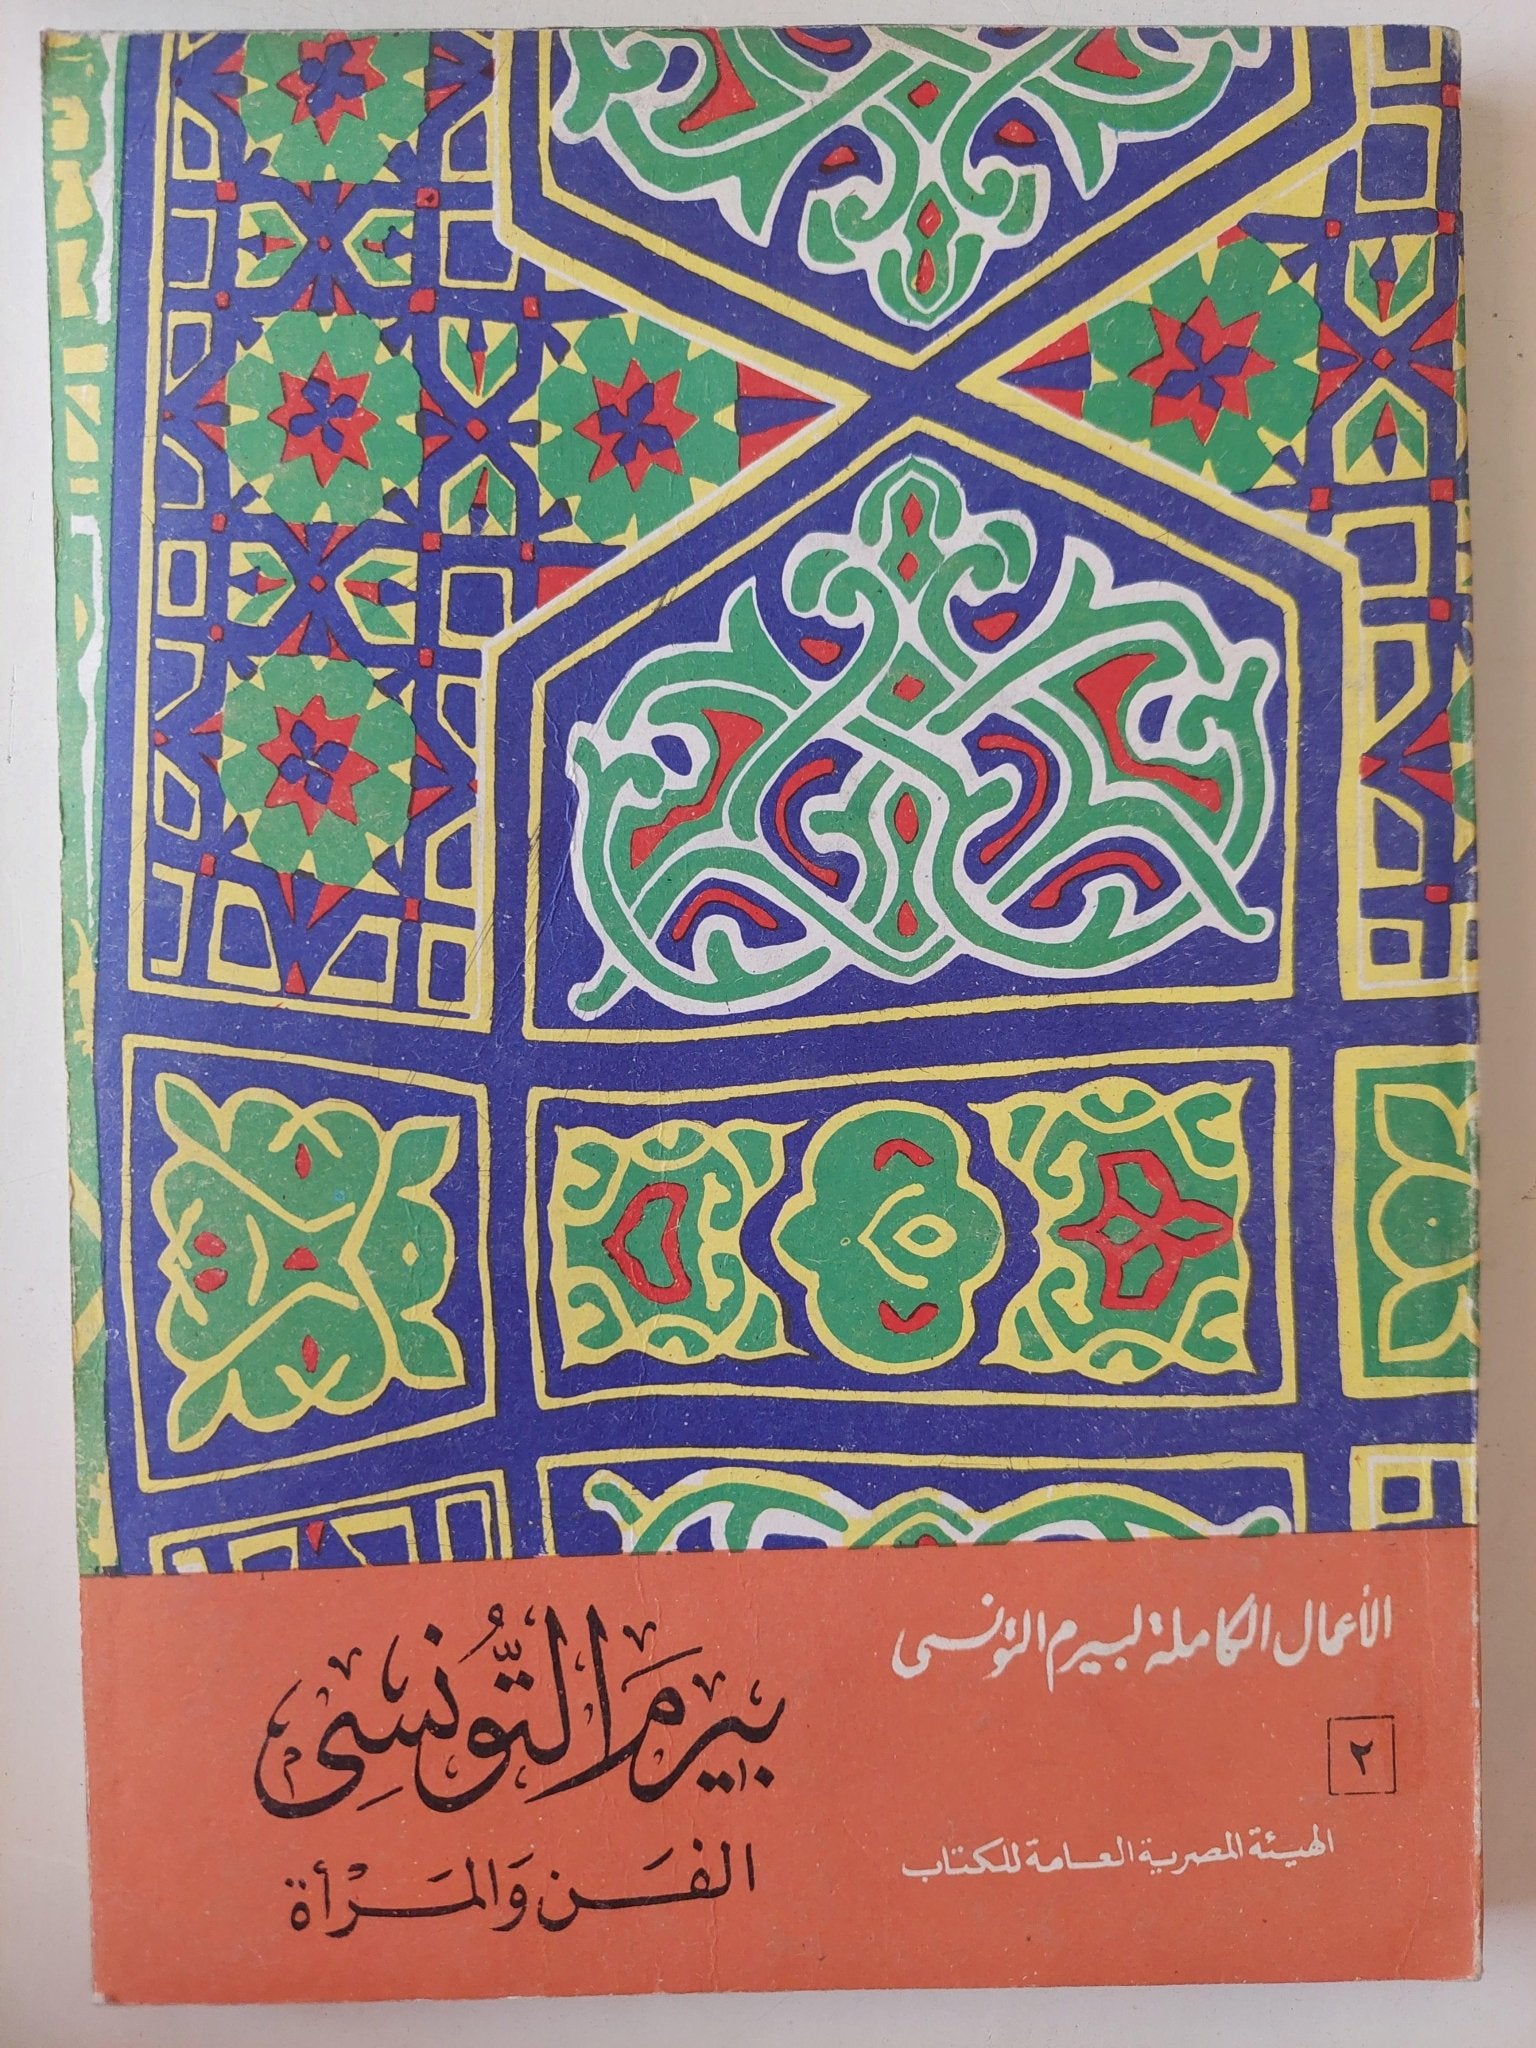 الأعمال الكاملة لبيرم التونسى
٢
الهيئة المصرية العامة للكتاب
بيرم التُّونسِى
الفَن وَالمَرْأة